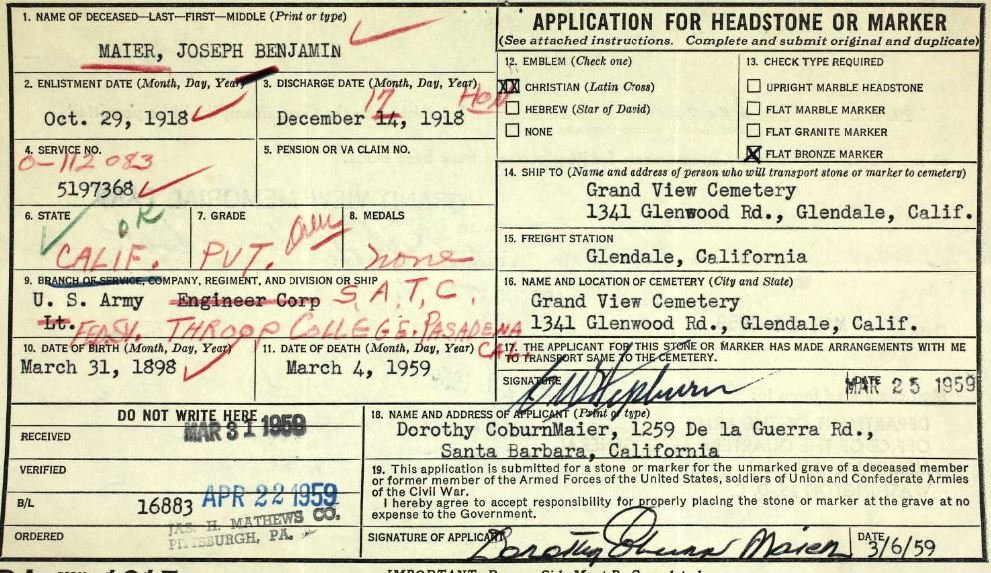 1. NAME OF DECEASED—LAST—FIRST—MIDDLE (Print or type)
MAIER, JOSEPH BENJAMIN
2. ENLISTMENT DATE (Month, Day, Year)
Oct. 29, 1918
3. DISCHARGE DATE (Month, Day, Year)
17 HON
December 14, 1918
4. SERVICE NO.
O-112 083
5197368
5. PENSION OR VA CLAIM NO.
6. STATE
OK
CALIF.
7. GRADE
PVT.
8. MEDALS
none
9. BRANCH OF SERVICE, COMPANY, REGIMENT, AND DIVISION OR SHIP
U. S. Army Engineer Corp S.A.T.C.
Lt. THROOP COLLEGE, PASADENA
10. DATE OF BIRTH (Month, Day, Year)
March 31, 1898
11. DATE OF DEATH (Month, Day, Year)
March 4, 1959
APPLICATION FOR HEADSTONE OR MARKER
(See attached instructions. Complete and submit original and duplicate)
12. EMBLEM (Check one)
XX CHRISTIAN (Latin Cross)
HEBREW (Star of David)
NONE
13. CHECK TYPE REQUIRED
UPRIGHT MARBLE HEADSTONE
FLAT MARBLE MARKER
FLAT GRANITE MARKER
X FLAT BRONZE MARKER
14. SHIP TO (Name and address of person who will transport stone or marker to cemetery)
Grand View Cemetery
1341 Glenwood Rd., Glendale, Calif.
15. FREIGHT STATION
Glendale, California
16. NAME AND LOCATION OF CEMETERY (City and State)
Grand View Cemetery
1341 Glenwood Rd., Glendale, Calif.
17. THE APPLICANT FOR THIS STONE OR MARKER HAS MADE ARRANGEMENTS WITH ME
TO TRANSPORT SAME TO THE CEMETERY.
SIGNATURE Hepburn
DATE
MAR 25 1959
DO NOT WRITE HERE
RECEIVED MAR 31 1959
VERIFIED
B/L 16883 APR 22 1959
JAS. H. MATHEWS CO.
PITTSBURGH, PA.
ORDERED
18. NAME AND ADDRESS OF APPLICANT (Print or type)
Dorothy CoburnMaier, 1259 De la Guerra Rd.,
Santa Barbara, California
19. This application is submitted for a stone or marker for the unmarked grave of a deceased member
or former member of the Armed Forces of the United States, soldiers of Union and Confederate Armies
of the Civil War.
I hereby agree to accept responsibility for properly placing the stone or marker at the grave at no
expense to the Government.
SIGNATURE OF APPLICANT Dorothy Coburn Maier
DATE
3/6/59